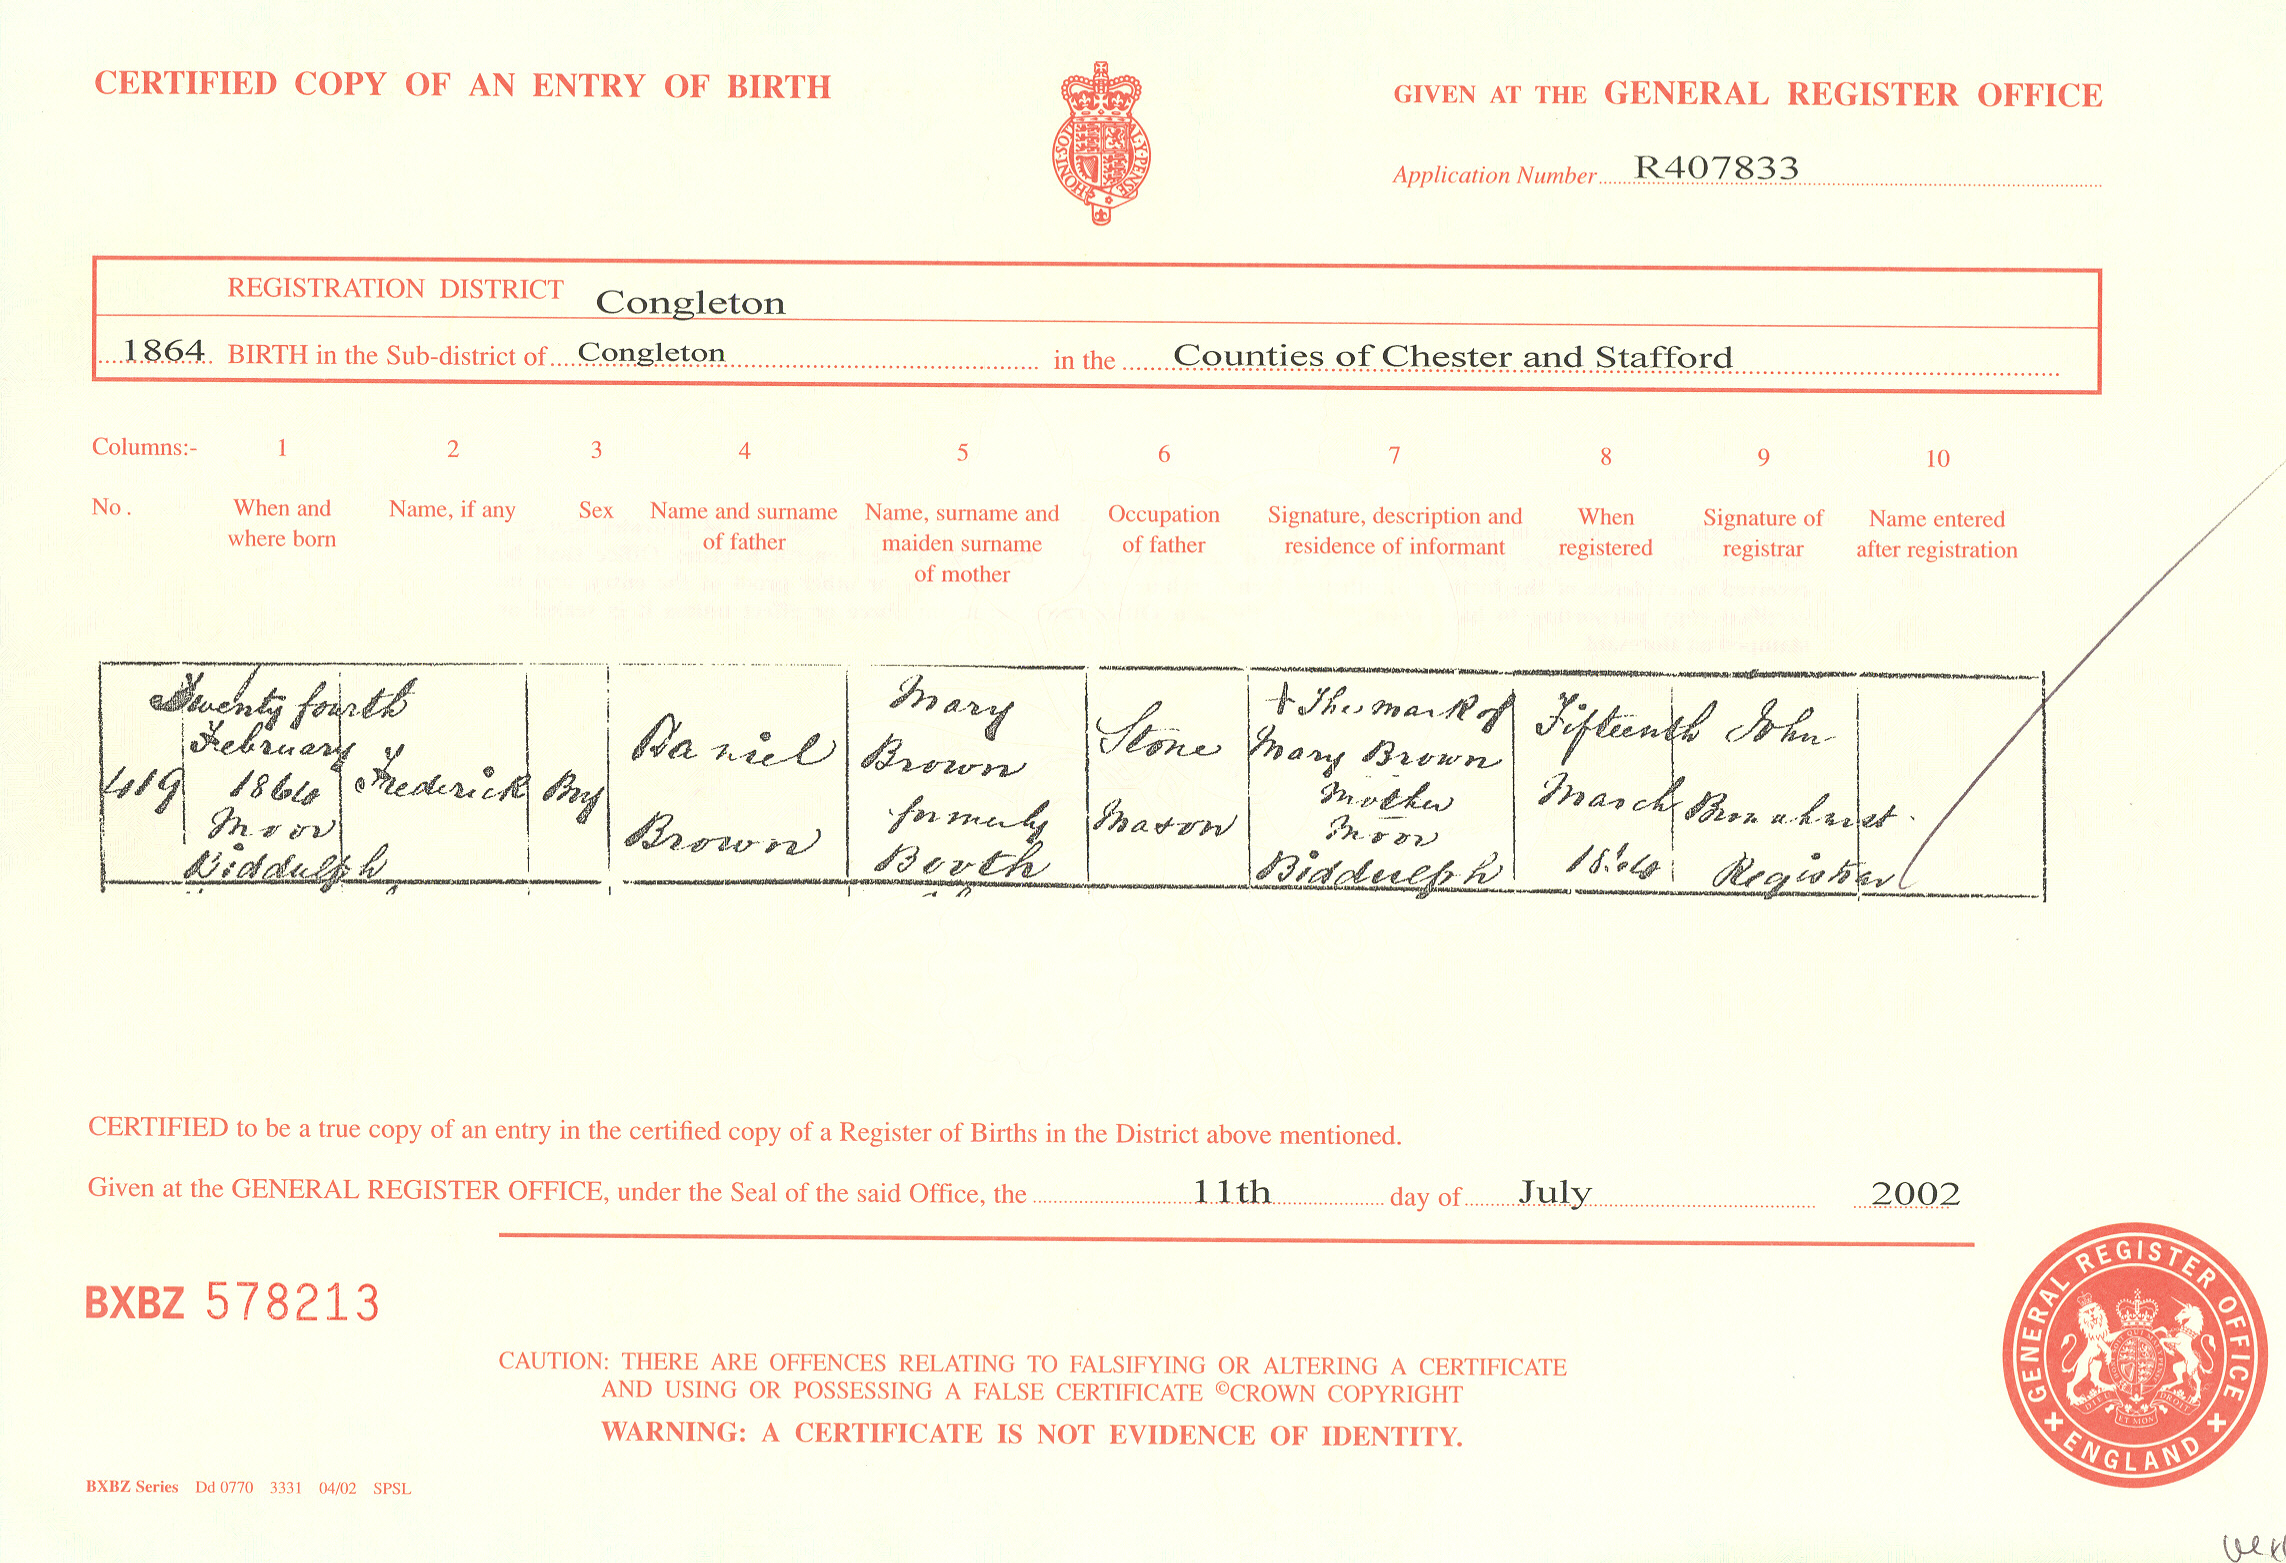 CERTIFIED COPY OF AN ENTRY OF BIRTH
GIVEN AT THE GENERAL REGISTER OFFICE
HONI·SOIT
AL·Y·PENSE
Application Number R407833
REGISTRATION DISTRICT Congleton
1864 BIRTH in the Sub-district of Congleton in the Counties of Chester and Stafford
Columns:- 1 2 3 4 5 6 7 8 9 10
No. When and where born Name, if any Sex Name and surname of father Name, surname and maiden surname of mother Occupation of father Signature, description and residence of informant When registered Signature of registrar Name entered after registration
419
Twenty fourth
February
1864
Moor
Biddulph
Frederick
Boy
Daniel
Brown
Mary
Brown
formerly
Booth
Stone
Mason
+ The mark of
Mary Brown
Mother
Moor
Biddulph
Fifteenth
March
1864
John
Registrar
CERTIFIED to be a true copy of an entry in the certified copy of a Register of Births in the District above mentioned.
Given at the GENERAL REGISTER OFFICE, under the Seal of the said Office, the 11th day of July 2002
BXBZ 578213
GENERAL REGISTER OFFICE
ENGLAND
CAUTION: THERE ARE OFFENCES RELATING TO FALSIFYING OR ALTERING A CERTIFICATE
AND USING OR POSSESSING A FALSE CERTIFICATE ©CROWN COPYRIGHT
WARNING: A CERTIFICATE IS NOT EVIDENCE OF IDENTITY.
BXBZ Series Dd 0770 3331 04/02 SPSL